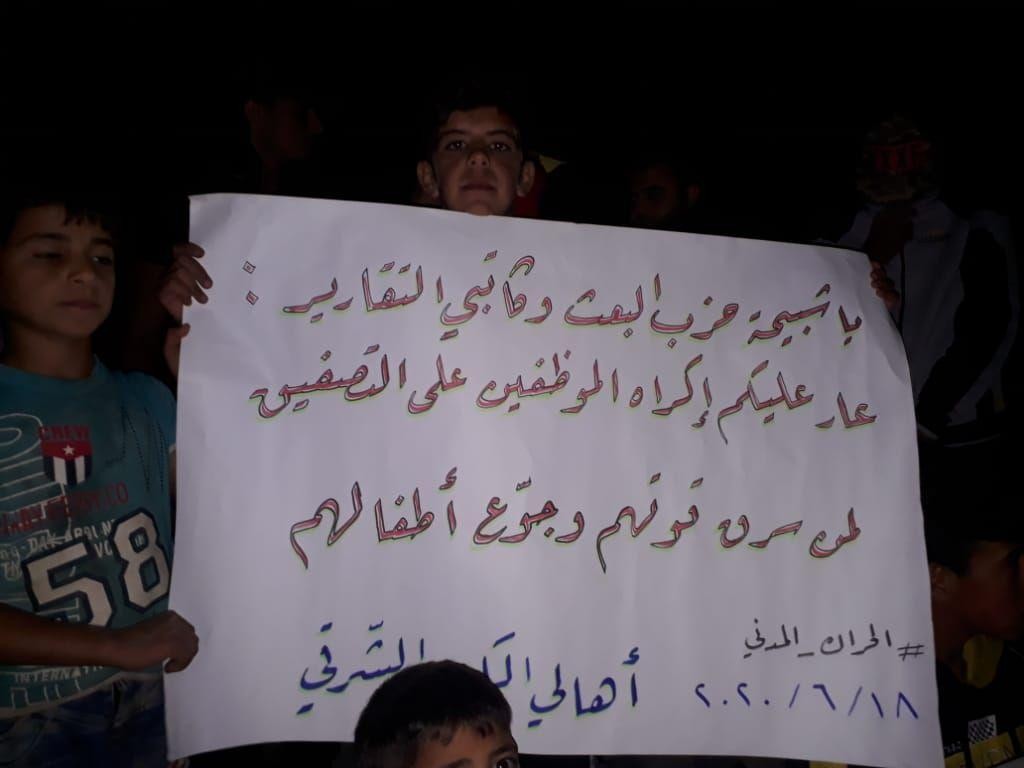 يا شبيحة حزب البعث وكاتبي التقارير :
عار عليكم إكراه الموظفين على التصفيق
لمن سرق قوتهم وجوّع أطفالهم
#الحراك_المدني
أهالي الشرقي
٢٠٢٠/٦/١٨
CREW
58
INTERNATI